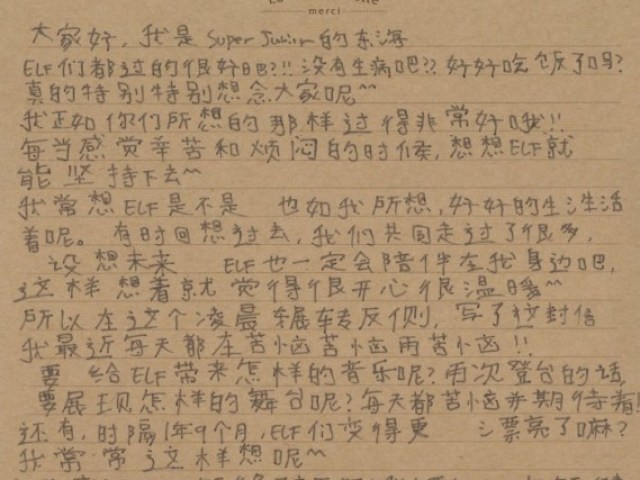 merci
大家好，我是 Super Junior 的东海
ELF们都过的很好吧?!! 没有生病吧?? 好好吃饭了吗?
真的特别特别想念大家呢^^
我正如你们所想的那样过得非常好哦!!
每当感觉辛苦和烦闷的时候，想想ELF就
能坚持下去~
我常想ELF是不是 也如我所想，好好的生活
着呢。有时回想过去，我们共同走过了很多，
设想未来 ELF也一定会陪伴在我身边吧，
这样想着就觉得很开心很温暖~
所以在这个凌晨辗转反侧，写了这封信
我最近每天都在苦恼苦恼再苦恼!!
要 给ELF带来怎样的音乐呢? 再次登台的话，
要展现怎样的舞台呢? 每天都苦恼并期待着!
还有，时隔1年9个月，ELF们变得更 漂亮了嘛?
我常常这样想呢^^